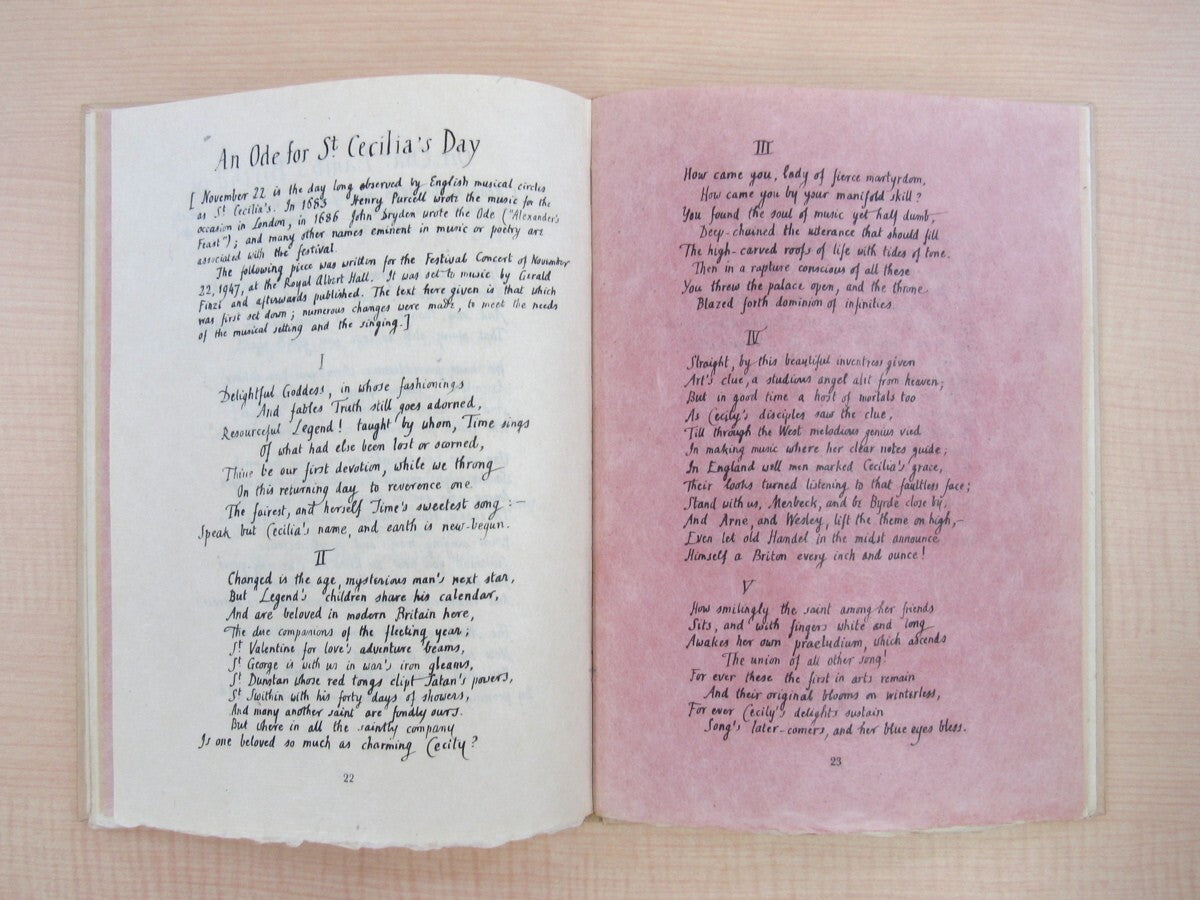 An Ode for St Cecilia's Day
[ November 22 is the day long observed by English musical circles
as St Cecilia's. In 1683 Henry Purcell wrote the music for the
occasion in London, in 1686 John Dryden wrote the Ode ("Alexander's
Feast"); and many other names eminent in music or poetry are
associated with the festival.
The following piece was written for the Festival Concert of November
22, 1947, at the Royal Albert Hall. It was set to music by Gerald
Finzi and afterwards published. The text here given is that which
was first set down; numerous changes were made, to meet the needs
of the musical setting and the singing.]
I
Delightful Goddess, in whose fashionings
And fables Truth still goes adorned,
Resourceful Legend! taught by whom, Time sings
Of what had else been lost or scorned,
Thine be our first devotion, while we throng
On this returning day to reverence one
The fairest, and herself Time's sweetest song :—
Speak but Cecilia's name, and earth is new-begun.
II
Changed is the age, mysterious man's next star,
But Legend's children share his calendar,
And are beloved in modern Britain here,
The due companions of the fleeting year;
St Valentine for love's adventure beams,
St George is with us in war's iron gleams,
St Dunstan whose red tongs clipt Satan's powers,
St Swithin with his forty days of showers,
And many another saint are fondly ours.
But where in all the saintly company
Is one beloved so much as charming Cecily?
22
III
How came you, lady of fierce martyrdom,
How came you by your manifold skill?
You found the soul of music yet half dumb,
Deep-chained the utterance that should fill
The high-carved roofs of life with tides of tone.
Then in a rapture conscious of all these
You threw the palace open, and the throne
Blazed forth dominion of infinities.
IV
Straight, by this beautiful inventress given
Art's clue, a studious angel alit from heaven;
But in good time a host of mortals too
As Cecily's disciples saw the clue,
Till through the West melodious genius vied
In making music where her clear notes guide;
In England well men marked Cecilia's grace,
Their looks turned listening to that faultless face;
Stand with us, Merbeck, and be Byrde close by,
And Arne, and Wesley, lift the theme on high,—
Even let old Handel in the midst announce
Himself a Briton every inch and ounce!
V
How smilingly the saint among her friends
Sits, and with fingers white and long
Awakes her own praeludium, which ascends
The union of all other song!
For ever these the first in arts remain
And their original blooms on winterless,
For ever Cecily's delights sustain
Song's later-comers, and her blue eyes bless.
23